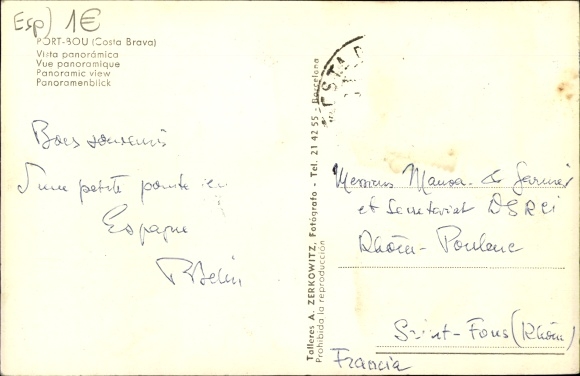 Esp) 1€
PORT-BOU (Costa Brava)
Vista panorámica
Vue panoramique
Panoramic view
Panoramenblick
Bons souvenirs
d'une petite pointe en
Espagne
Talleres A. ZERKOWITZ, Fotógrafo - Tel. 21 42 55 - Barcelona
Prohibida la reproducción
Messieurs Manoa - de Garnier
et Secretariat DSRCi
Rhône-Poulenc
Saint-Fons (Rhône)
Francia